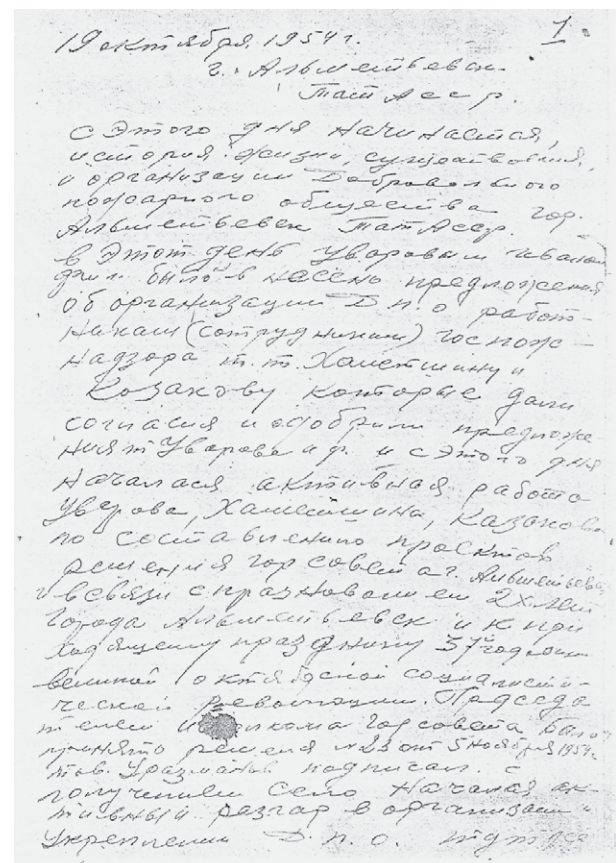 1.
19 октября 1954 г.
г. Альметьевск
Тат Асср.
с Этого дня Начинается,
история жизни, существования,
и организации Добровольного
пожарного общества гор.
Альметьевск Тат Асср.
в Этот день Уваровым Иваном
было внесено предложения
об организации Д.п.о работ-
никам (сотрудникам) Госпож-
надзора т.т. Хаметшину и
Козакову которые дали
согласия и одобрили предложе
ния т Уварова и ф. и с Этого дня
Началася активная работа
Уварова, Хаметшина, Казакова
по составлению проектов
решения горсовета г. Альметьевск
в связи с празнованием 2х лет
города Альметьевск и к при
ходящему празднику 37й годовщ
великой октябрской социалисти-
ческой революции. Председа
телем горсовета было
принято решения №23 от 5 Ноября 1954 г.
тов. Уразманов подписал. с
получением сего Началася ак-
тивный разгар в организации и
Укреплении Д.п.о.